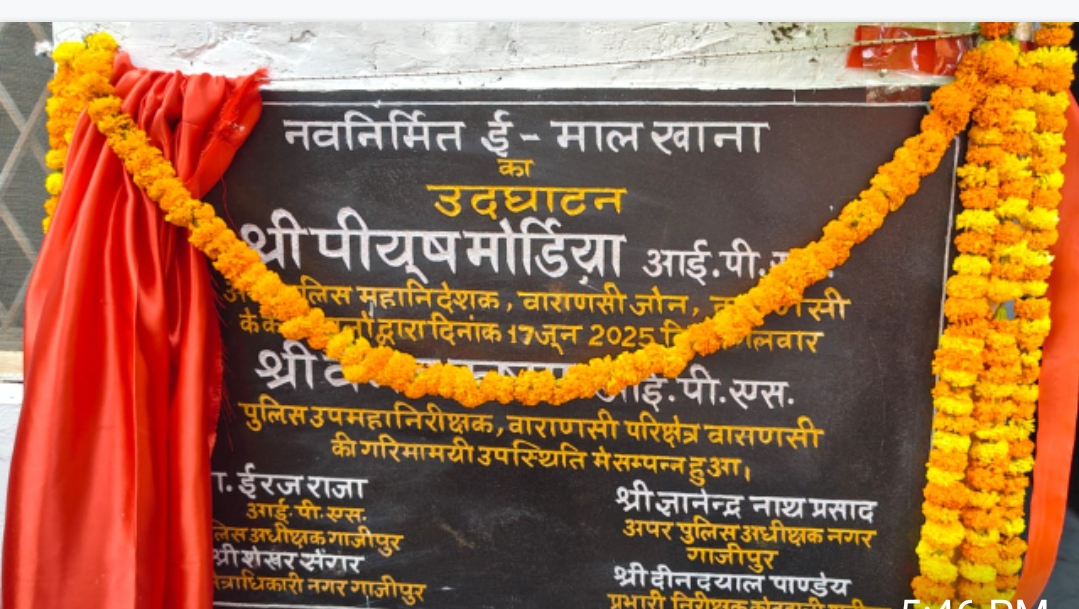 नवनिर्मित ई - माल खाना
का
उदघाटन
श्री पीयूष मोर्डिया आई.पी.
लिस महानिदेशक, वाराणसी जोन,
द्वारा दिनांक 17 जून 2025
श्री आई.पी.एस.
पुलिस उपमहानिरीक्षक, वाराणसी परिक्षेत्र वासणसी
की गरिमामयी उपस्थिति मे सम्पन्न हुआ।
ा. ईरज राजा
आई. पी. एस.
लिस अधीक्षक गाजीपुर
श्री शेखर सेंगर
त्राधिकारी नगर गाजीपुर
श्री ज्ञानेन्द्र नाथ प्रसाद
अपर पुलिस अधीक्षक नगर
गाजीपुर
श्री दीनदयाल पाण्डेय
प्रभारी निरीक्षक
5:46 PM